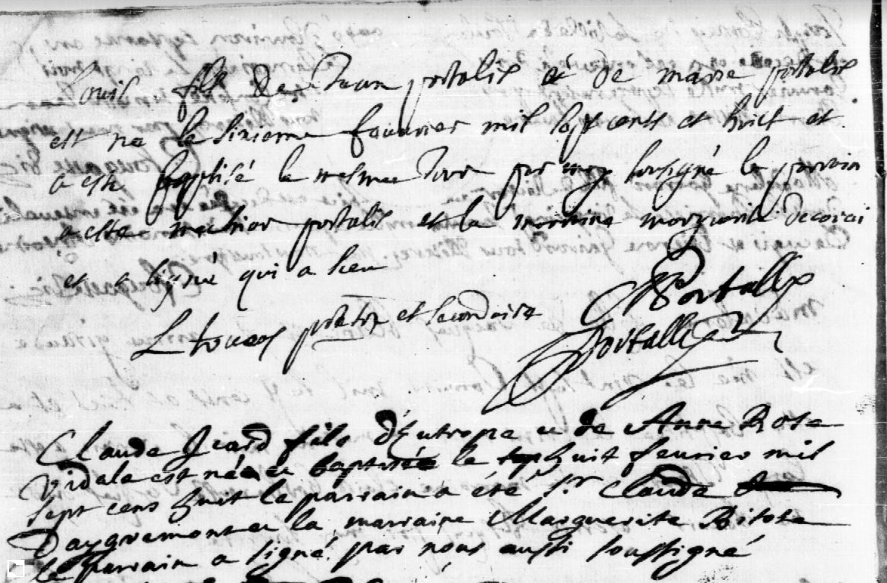 Louis fils de Jean portalis et de marie portalis
est ne le sixieme feuvrier mil sept cents et huict et
a este baptisé le mesme Jour par moy soussigné le parrin
a este melchior portalis et la mirrine marguerite
et a signé qui a sceu
ptre et secondaire Portallis
Portallis
Claude Icard fils d'Eutrope et de Anne Rose
Vidale est né et baptisé le huit fevrier mil
sept cens huit le parrain a été Sr Claude
Daygremont et la marraine Marguerite
le parrain a signé par nous aussi soussigné